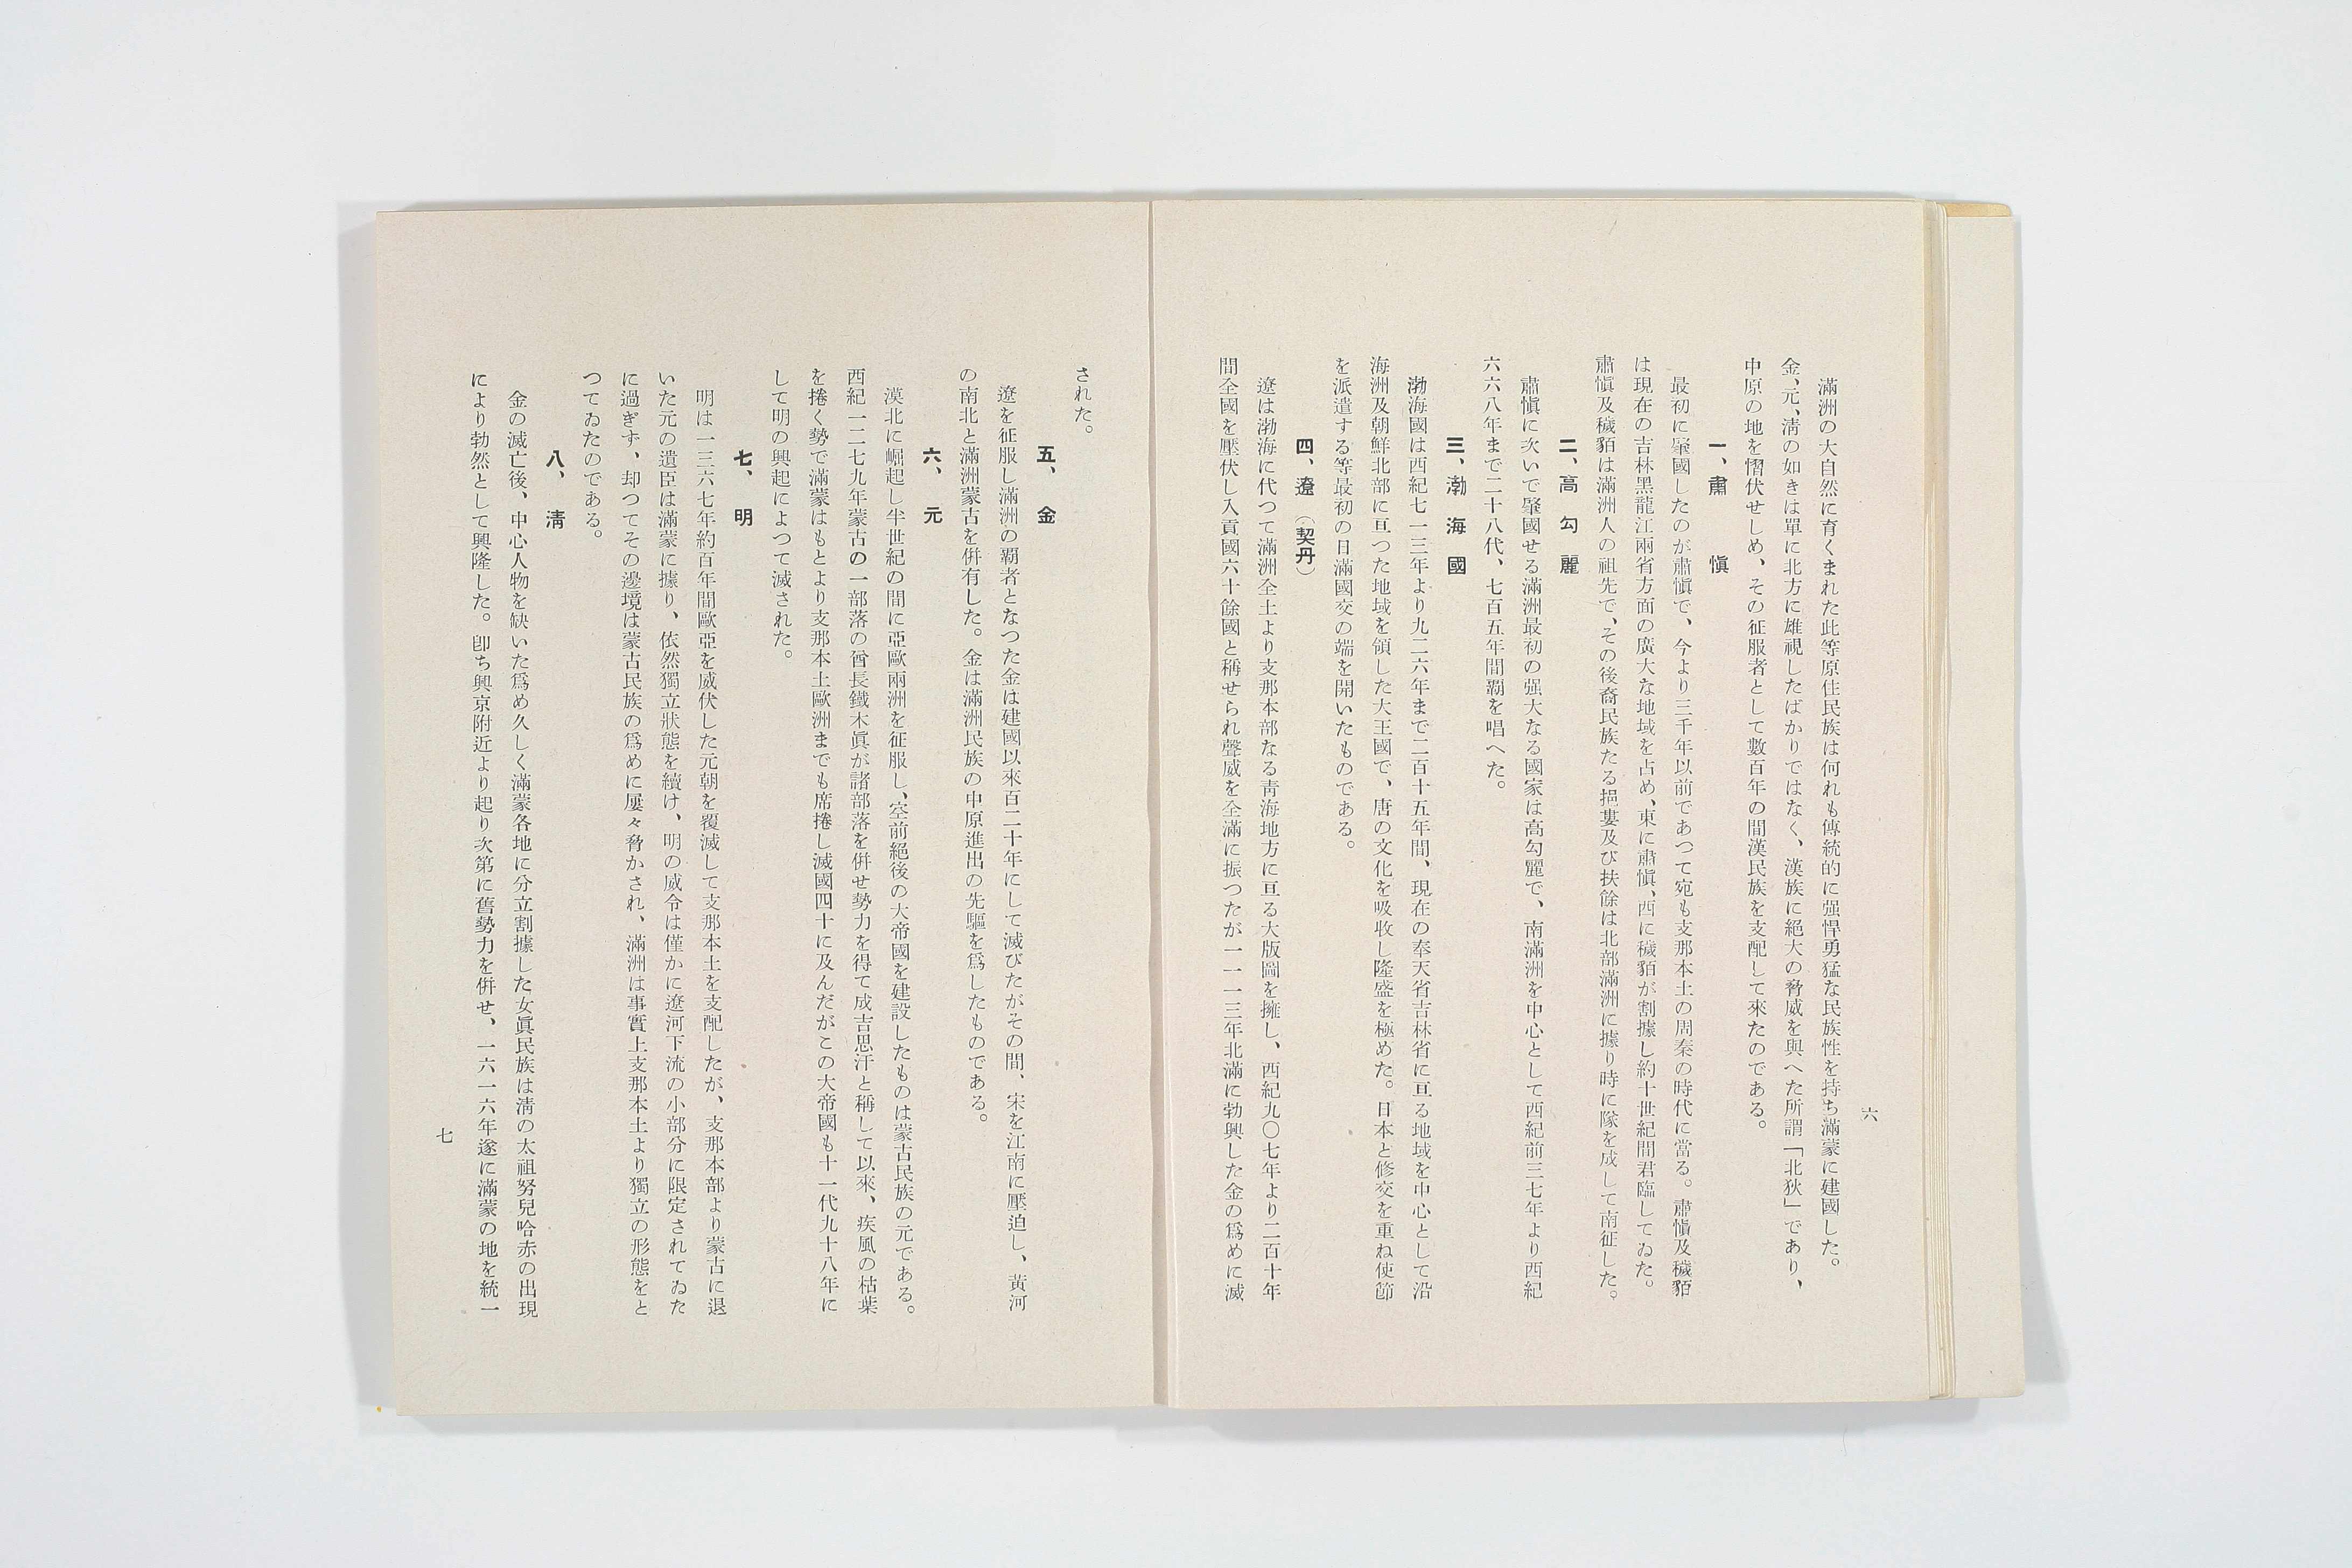 六
滿洲の大自然に育くまれた此等原住民族は何れも傳統的に强悍勇猛な民族性を持ち滿蒙に建國した。
金、元、淸の如きは單に北方に雄視したばかりではなく、漢族に絕大の脅威を與へた所謂「北狄」であり、
中原の地を慴伏せしめ、その征服者として數百年の間漢民族を支配して來たのである。
一、肅愼
最初に肇國したのが肅愼で、今より三千年以前であつて宛も支那本土の周秦の時代に當る。肅愼及穢貊
は現在の吉林黑龍江兩省方面の廣大な地域を占め、東に肅愼、西に穢貊が割據し約十世紀間君臨してゐた。
肅愼及穢貊は滿洲人の祖先で、その後裔民族たる挹婁及び扶餘は北部滿洲に據り時に隊を成して南征した。
二、高勾麗
肅愼に次いで肇國せる滿洲最初の强大なる國家は高勾麗で、南滿洲を中心として西紀前三七年より西紀
六六八年まで二十八代、七百五年間覇を唱へた。
三、渤海國
渤海國は西紀七一三年より九二六年まで二百十五年間、現在の奉天省吉林省に亘る地域を中心として沿
海洲及朝鮮北部に亘つた地域を領した大王國で、唐の文化を吸收し隆盛を極めた。日本と修交を重ね使節
を派遣する等最初の日滿國交の端を開いたものである。
四、遼（契丹）
遼は渤海に代つて滿洲全土より支那本部なる靑海地方に亘る大版圖を擁し、西紀九〇七年より二百十年
間全國を壓伏し入貢國六十餘國と稱せられ聲威を全滿に振つたが一一一三年北滿に勃興した金の爲めに滅
された。
五、金
遼を征服し滿洲の覇者となつた金は建國以來百二十年にして滅びたがその間、宋を江南に壓迫し、黃河
の南北と滿洲蒙古を倂有した。金は滿洲民族の中原進出の先驅を爲したものである。
六、元
漠北に崛起し半世紀の間に亞歐兩洲を征服し、空前絕後の大帝國を建設したものは蒙古民族の元である。
西紀一二七九年蒙古の一部落の酋長鐵木眞が諸部落を倂せ勢力を得て成吉思汗と稱して以來、疾風の枯葉
を捲く勢で滿蒙はもとより支那本土歐洲までも席捲し滅國四十に及んだがこの大帝國も十一代九十八年に
して明の興起によつて滅された。
七、明
明は一三六七年約百年間歐亞を威伏した元朝を覆滅して支那本土を支配したが、支那本部より蒙古に退
いた元の遺臣は滿蒙に據り、依然獨立狀態を續け、明の威令は僅かに遼河下流の小部分に限定されてゐた
に過ぎず、却つてその邊境は蒙古民族の爲めに屢々脅かされ、滿洲は事實上支那本土より獨立の形態をと
つてゐたのである。
八、淸
金の滅亡後、中心人物を缺いた爲め久しく滿蒙各地に分立割據した女眞民族は淸の太祖努兒哈赤の出現
により勃然として興隆した。卽ち興京附近より起り次第に舊勢力を倂せ、一六一六年遂に滿蒙の地を統一
七